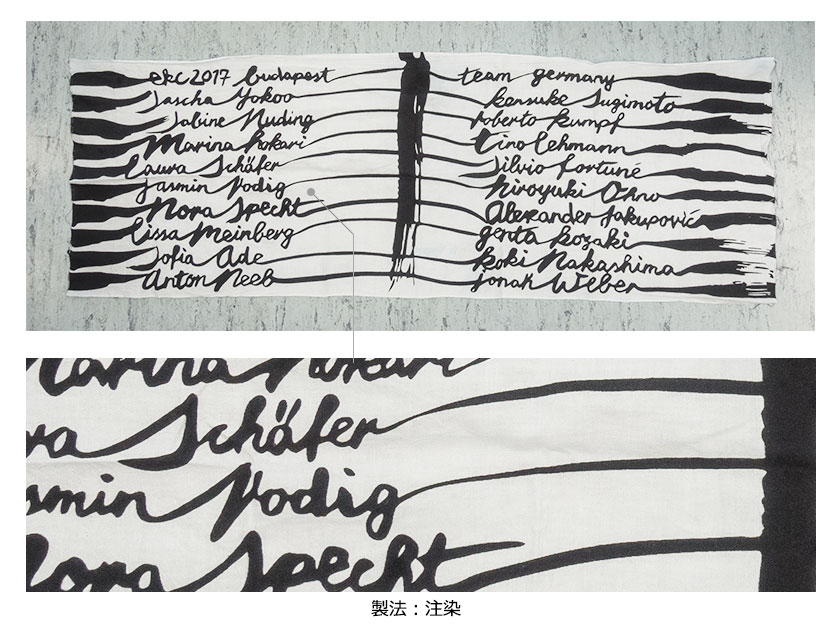 ekc2017 budapest
Sascha Yokoo
Sabine Nuding
Marina Kokari
Laura Schäfer
Jasmin Vodig
Nora Specht
Lissa Meinberg
Sofia Ade
Anton Neeb
team germany
kensuke Sugimoto
roberto kumpf
tino lehmann
silvio fortuné
hiroyuki Ohno
Alexander Jakupović
genta kozaki
koki Nakashima
Jonah Weber
Marina Kokari
ra Schäfer
asmin Vodig
Nora Specht
製法：注染